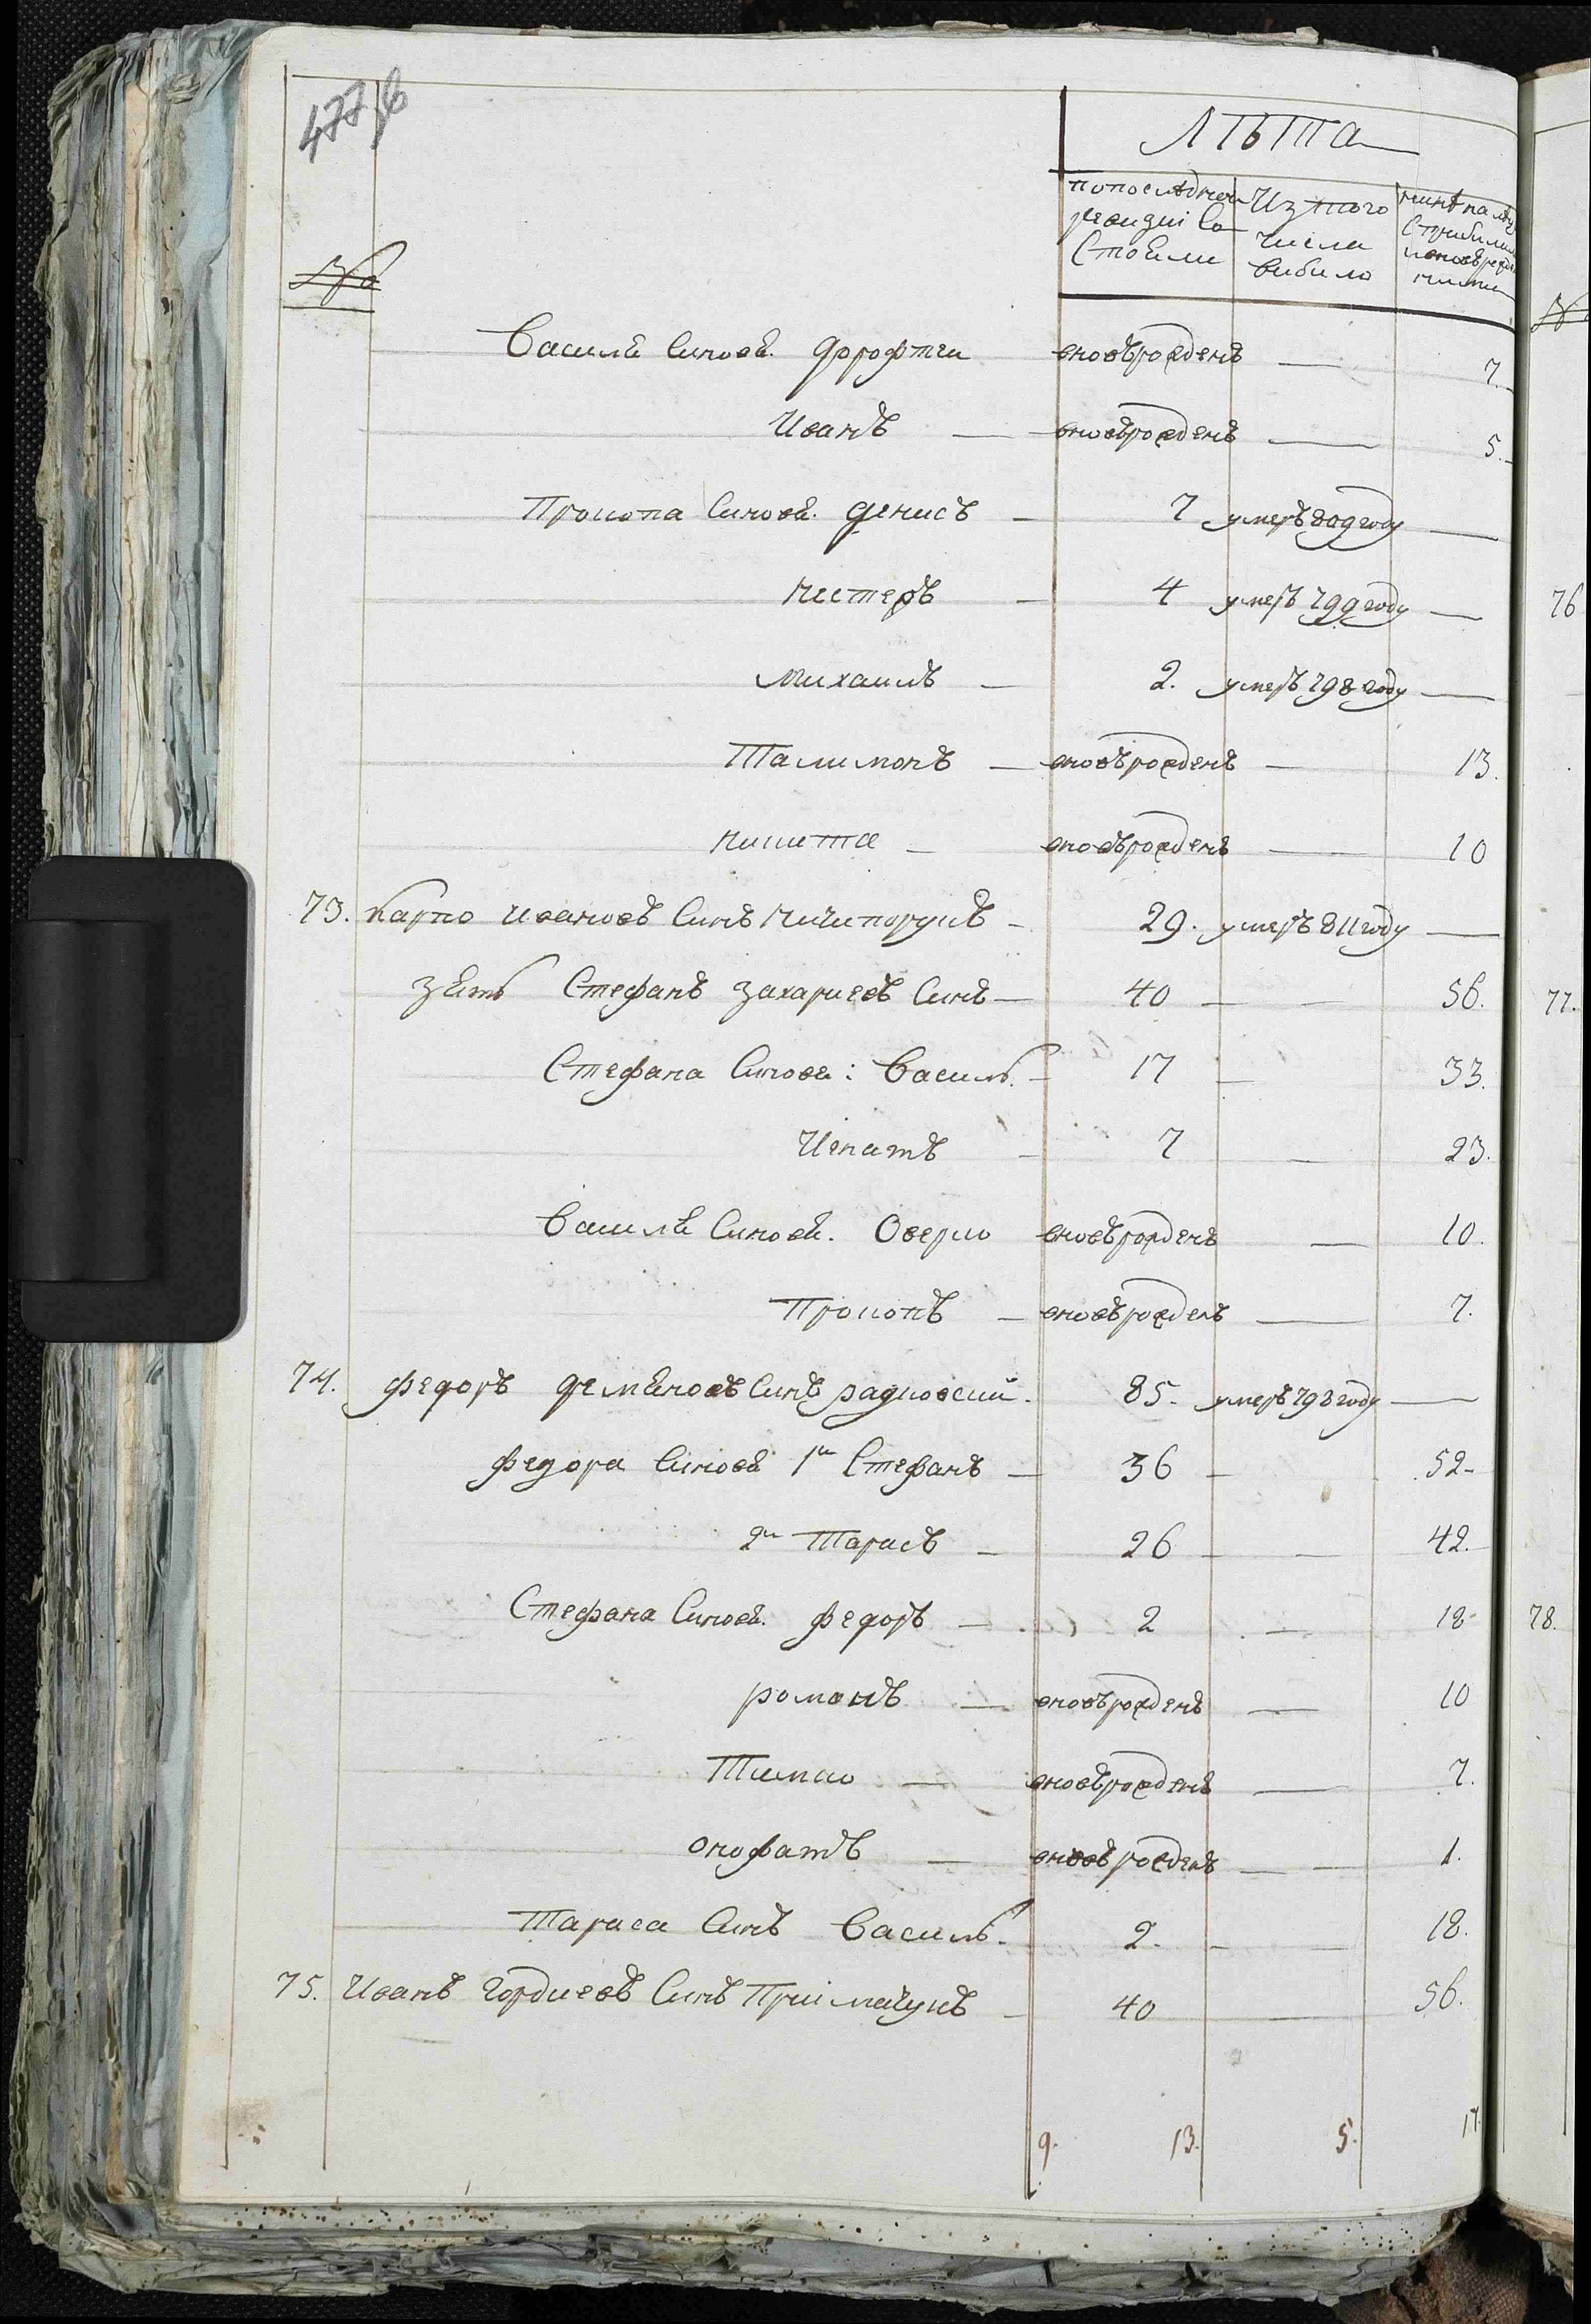 477
Лѣта
№
по последней ревизиі состояли
Из того числа вибило
ныне на лицо с прибилими и вновь рожденими
Василя синовя. Дорофтеи вновъ рожденъ — 7.
Иванъ — вновъ рожденъ — 5.
Прокопа синовя. Денисъ — 7 умеръ 809 году —
Нестеръ — 4 умеръ 799 году —
Михаилъ — 2. умеръ 798 году —
Талимонъ — вновъ рожденъ — 13.
Никита — вновъ рожденъ — 10
73. Карпо Ивановъ синъ Ничипорукъ — 29. умеръ 811 году —
зять Стефанъ Захариевъ синъ — 40 — 56.
Стефана синовя: Василь. — 17 — 33.
Игнатъ — 7 — 23.
Василя синовя. Оверко вновъ рожденъ — 10.
Прокопъ — вновъ рожденъ — 7.
74. Федоръ Демяновъ синъ Радковский. 85. умеръ 798 году —
Федора синовя 1й Стефанъ — 36 — 52.
2й Тарасъ — 26 — 42.
Стефана синовя. Федоръ — 2 — 18
Романъ — вновъ рожденъ — 10
Тимко — вновъ рожденъ — 7.
Онофатъ — вновъ рожденъ — 1.
Тараса синъ Василь. 2. — 18.
75. Иванъ Гордиевъ синъ Приімачукъ — 40 — 56.
9. 13. 5. 17
76
77.
78.